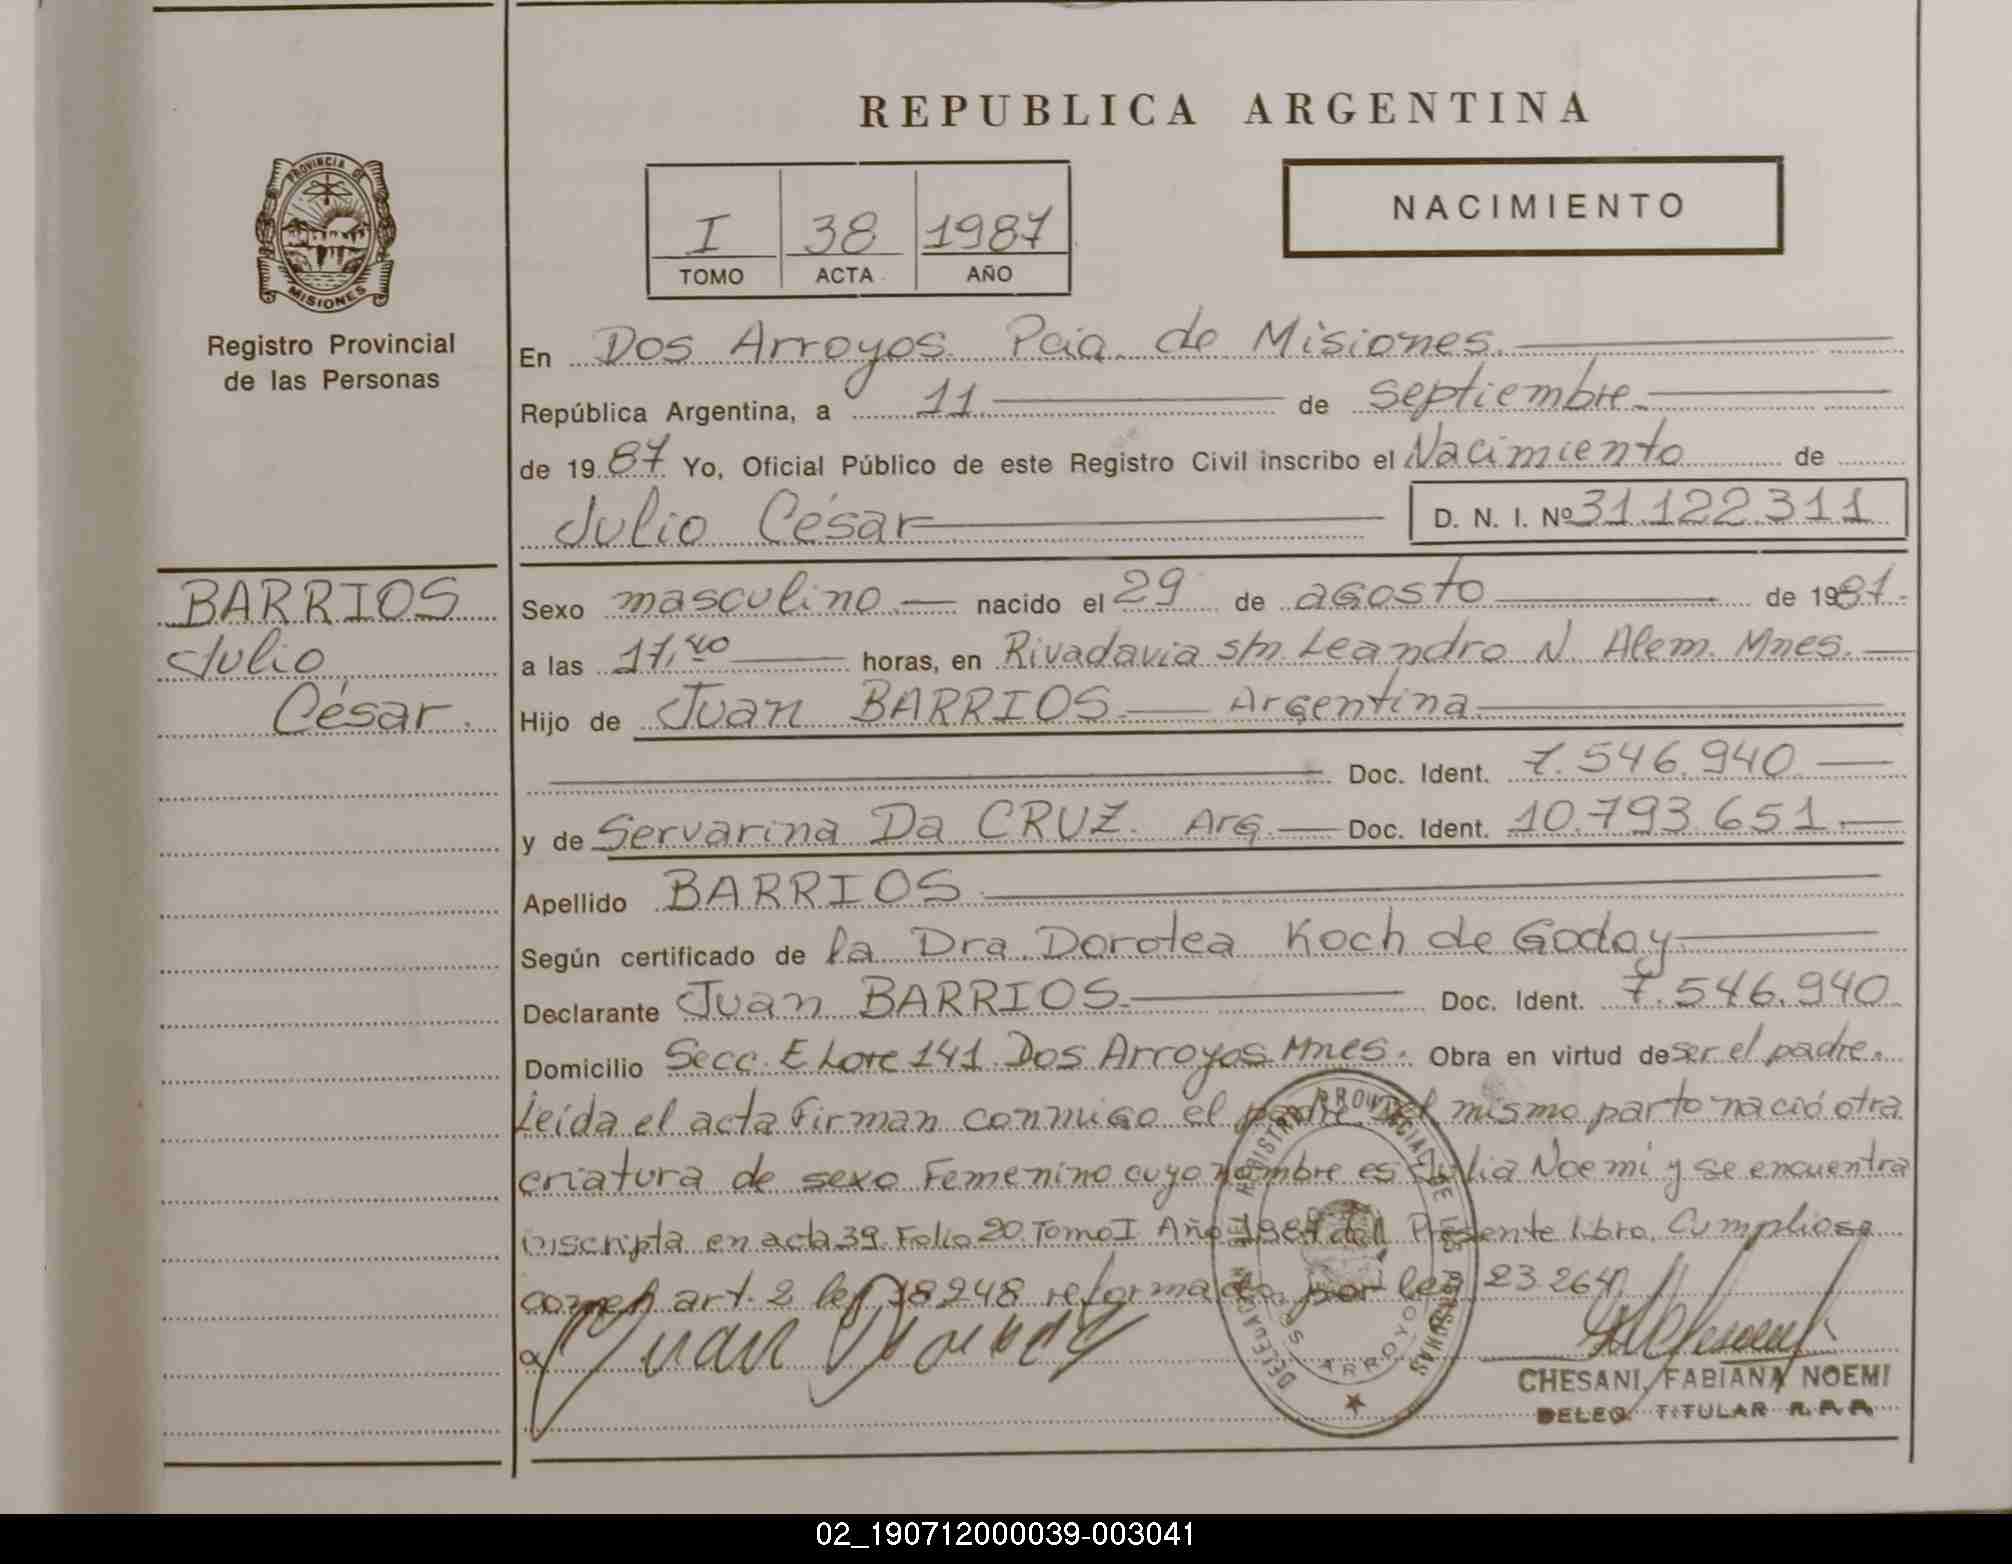 REPUBLICA ARGENTINA
PROVINCIA DE
MISIONES
Registro Provincial
de las Personas
I 38 1987
TOMO ACTA AÑO
NACIMIENTO
En Dos Arroyos Pcia. de Misiones.
República Argentina, a 11 de septiembre
de 1987 Yo, Oficial Público de este Registro Civil inscribo el Nacimiento de
Julio César D. N. I. Nº 31.122.311
BARRIOS
Julio
César.
Sexo masculino nacido el 29 de agosto de 1987.
a las 17,40 horas, en Rivadavia s/n Leandro N. Alem. Mnes.
Hijo de Juan BARRIOS. Argentina
Doc. Ident. 7.546.940
y de Servarina Da CRUZ. Arg. Doc. Ident. 10.793.651.
Apellido BARRIOS
Según certificado de la Dra. Dorotea Koch de Godoy
Declarante Juan BARRIOS. Doc. Ident. 7.546.940
Domicilio Secc. E Lote 141 Dos Arroyos Mnes. Obra en virtud de ser el padre.
Leída el acta Firman conmigo el padre. Del mismo parto nació otra
criatura de sexo Femenino cuyo nombre es Julia Noemí y se encuentra
inscripta en acta 39 Folio 20 Tomo I Año 1987 del Presente libro. Cumpliose
con el art. 2 ley 18248 reformado por ley 23.264
CHESANI, FABIANA NOEMI
DELEG. TITULAR R.P.P.
02_190712000039-003041